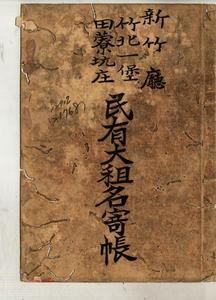 新竹廳
竹北一堡
田藔坑庄
民有大租名寄帳